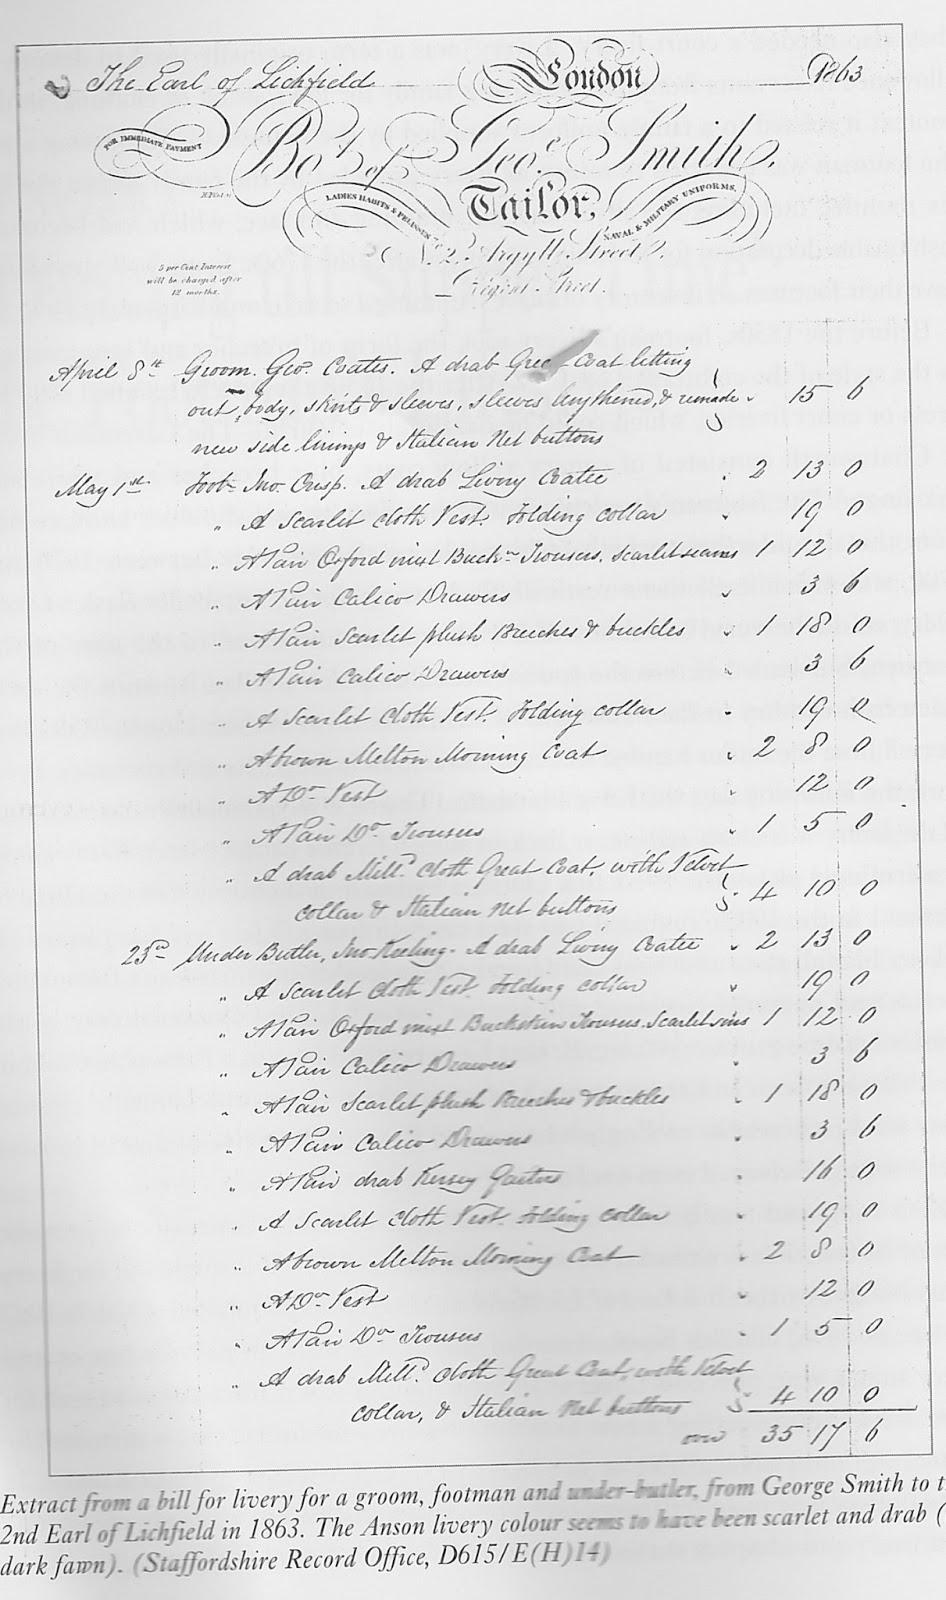 The Earl of Lichfield London 1863
FOR IMMEDIATE PAYMENT
Bot. of Geoe. Smith,
LADIES HABITS & PELISSES Tailor, NAVAL & MILITARY UNIFORMS.
No. 2. Argyll Street,
Regent Street.
5 per Cent Interest
will be charged after
12 months.
April 8th Groom. Geo. Coates. A drab Great Coat letting
out, body, skirts & sleeves, sleeves lengthened, & remade 15 6
new side linings & Italian Net buttons
May 1st Footn. Jno. Crisp. A drab Livery Coatee 2 13 0
" A Scarlet Cloth Vest. folding collar 19 0
" A Pair Oxford mixt Buckn. Trousers. Scarlet seams 1 12 0
" A Pair Calico Drawers 3 6
" A Pair Scarlet plush Breeches & buckles 1 18 0
" A Pair Calico Drawers 3 6
" A Scarlet Cloth Vest. folding collar 19 0
" A brown Melton Morning Coat 2 8 0
" A Do. Vest 12 0
" A Pair Do. Trousers 1 5 0
" A drab Mill'd. Cloth Great Coat, with Velvet
collar & Italian Net buttons 4 10 0
23rd Under Butler, Jno. Keeling. A drab Livery Coatee 2 13 0
" A Scarlet Cloth Vest. folding collar 19 0
" A Pair Oxford mixt Buckskin Trousers. Scarlet sms 1 12 0
" A Pair Calico Drawers 3 6
" A Pair Scarlet plush Breeches & buckles 1 18 0
" A Pair Calico Drawers 3 6
" A Pair drab Kersey Gaiters 16 0
" A Scarlet Cloth Vest. folding collar 19 0
" A brown Melton Morning Coat 2 8 0
" A Do. Vest 12 0
" A Pair Do. Trousers 1 5 0
" A drab Mill'd. Cloth Great Coat, with Velvet
collar, & Italian Net buttons 4 10 0
over 35 17 6
Extract from a bill for livery for a groom, footman and under-butler, from George Smith to t
2nd Earl of Lichfield in 1863. The Anson livery colour seems to have been scarlet and drab (
dark fawn). (Staffordshire Record Office, D615/E(H)14)